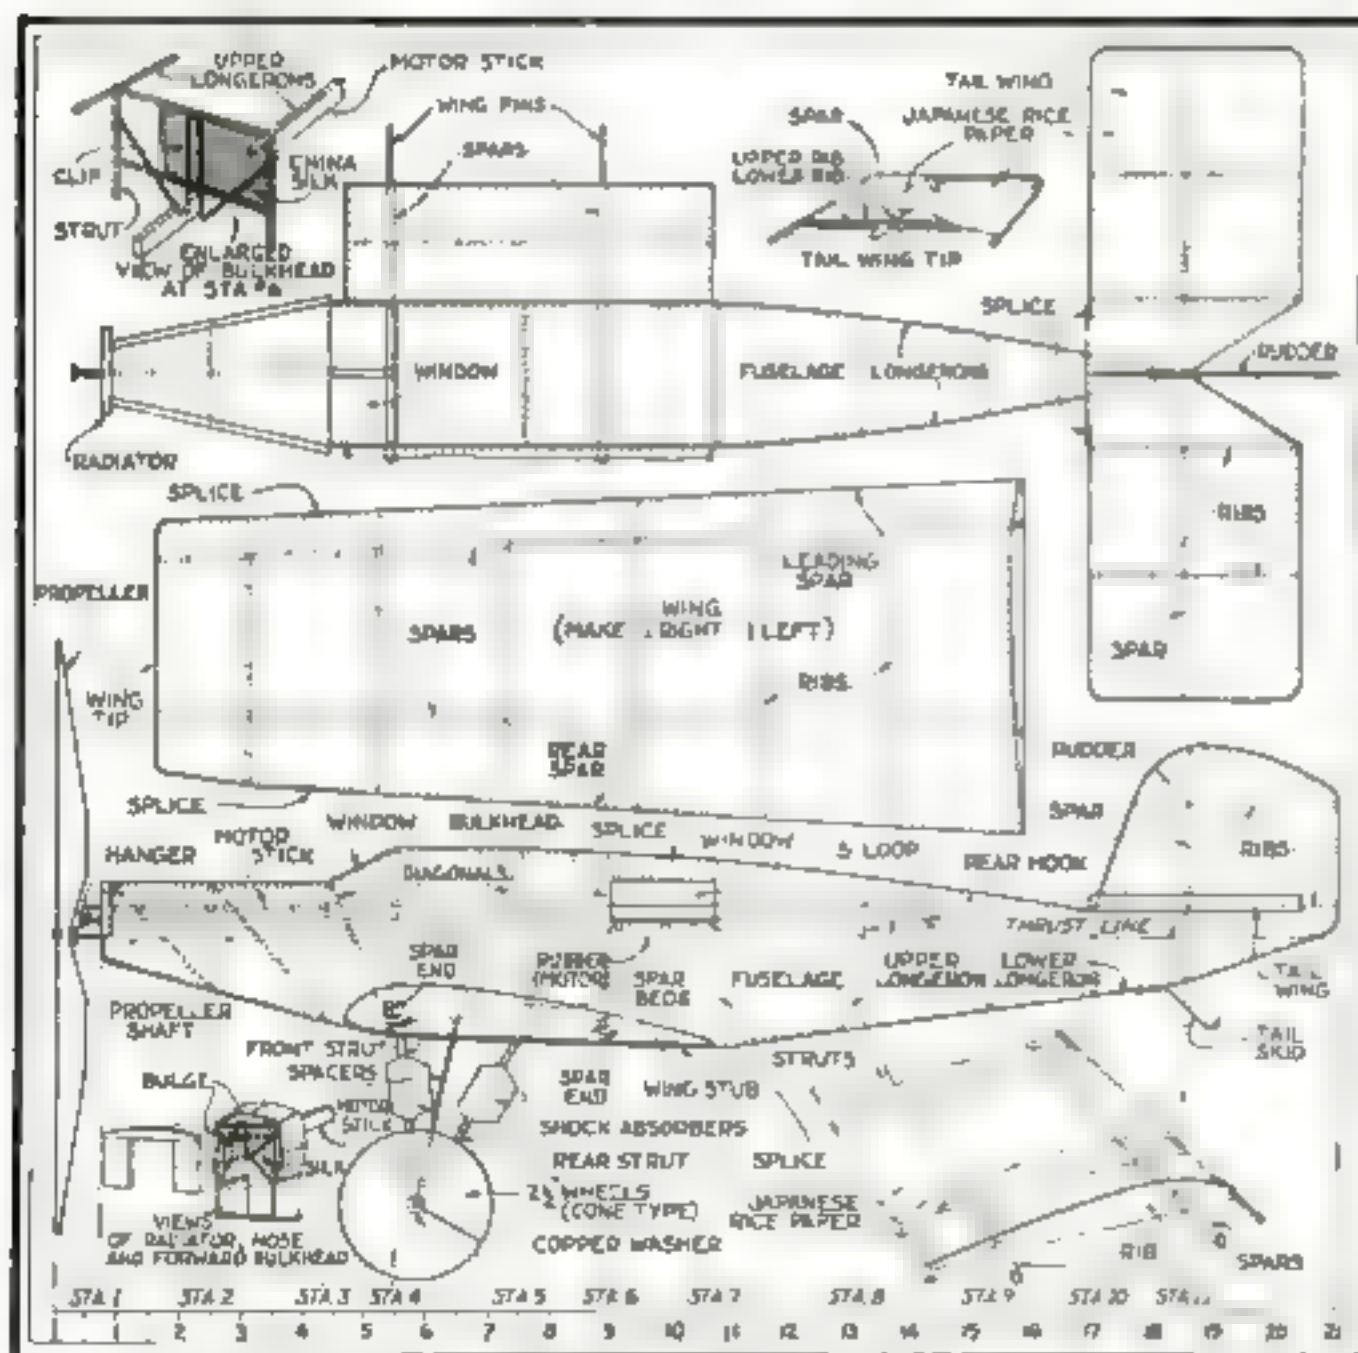 UPPER
LONGERONS
MOTOR STICK
WING PINS
SPARS
CLIP
CHINA
SILK
STRUT
ENLARGED
VIEW OF BULKHEAD
AT STA
TAIL WING
SPAR
JAPANESE RICE
PAPER
UPPER RIB
LOWER RIB
TAIL WING TIP
SPLICE
RUDDER
WINDOW
FUSELAGE LONGERONS
RADIATOR
SPLICE
RIBS
LEADING
SPAR
PROPELLER
SPARS
WING
(MAKE 1 RIGHT 1 LEFT)
SPAR
WING
TIP
RIBS
REAR
SPAR
RUDDER
SPLICE
SPAR
WINDOW
BULKHEAD
SPLICE
WINDOW
S LOOP
REAR HOOK
RIBS
HANGER
MOTOR
STICK
DIAGONALS
THRUST LINE
SPAR
END
RUBBER
(MOTOR)
SPAR
BEDS
FUSELAGE
UPPER
LONGERON
LOWER
LONGERON
TAIL
WING
PROPELLER
SHAFT
TAIL
SKID
FRONT STRUT
SPACERS
SPAR
END
WING STUB
STRUTS
BULGE
MOTOR
STICK
SILK
SHOCK ABSORBERS
REAR STRUT
SPLICE
WHEELS
(CONE TYPE)
JAPANESE
RICE PAPER
COPPER WASHER
VIEWS
OF RADIATOR, NOSE
AND FORWARD BULKHEAD
RIB
SPARS
STA 1 STA 2 STA 3 STA 4 STA 5 STA 6 STA 7 STA 8 STA 9 STA 10 STA 11
1 2 3 4 5 6 7 8 9 10 11 12 13 14 15 16 17 18 19 20 21